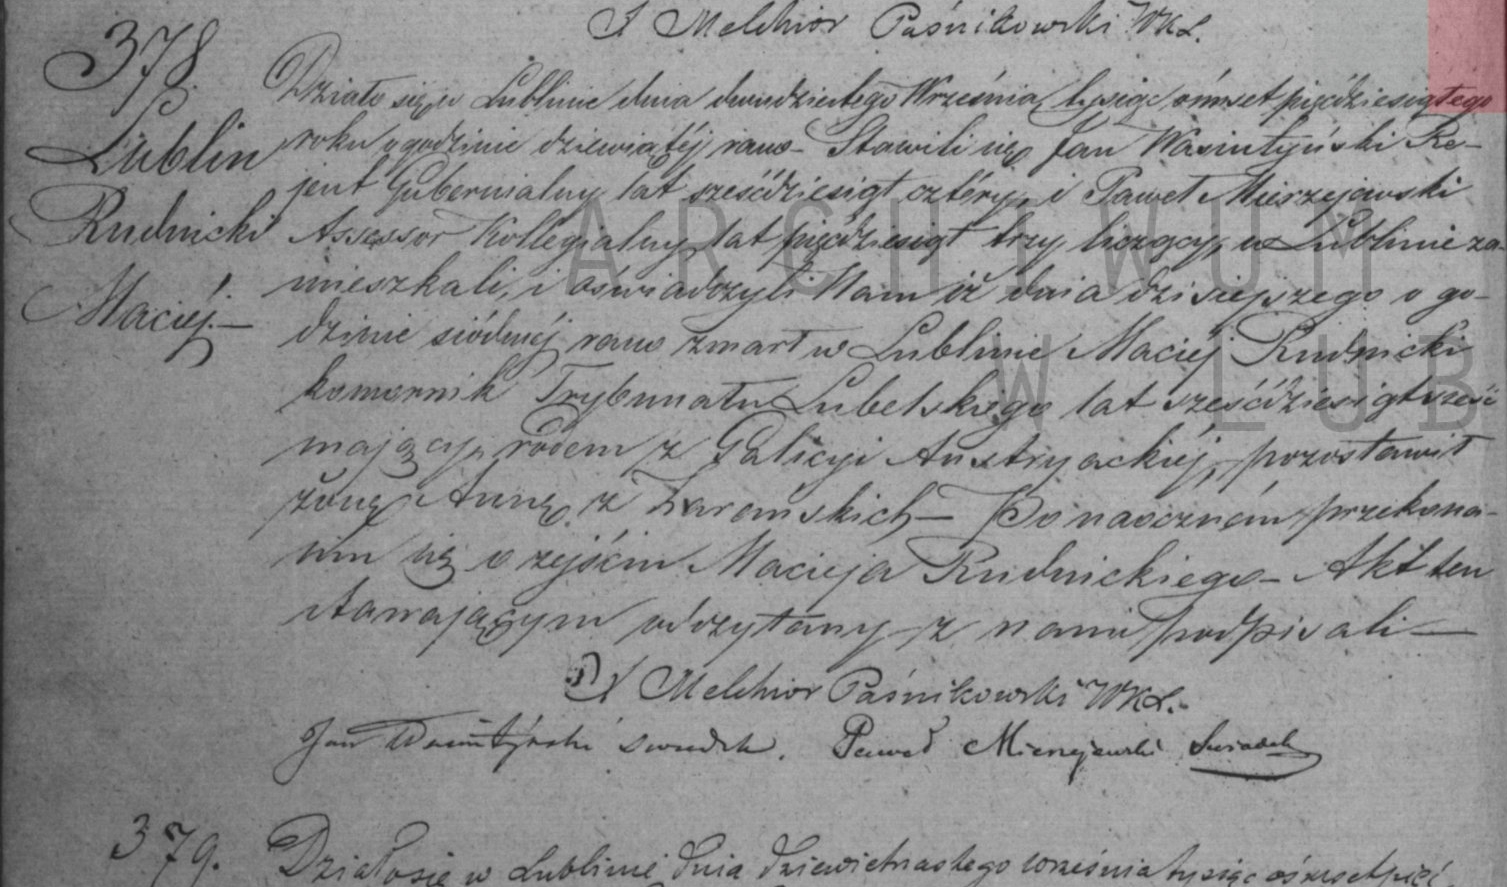 J Melchior Paśnikowski WKL.
378.
Lublin
Rudnicki
Maciéj.—
Działo się w Lublinie dnia dwudziestego Września tysiąc ośmset pięćdziesiątego
roku o godzinie dziewiątéj rano – Stawili się Jan Wasiutyński Re-
jent Gubernialny lat sześćdziesiąt cztéry, i Paweł Mierzejewski
Assessor Kollegialny lat pięćdziesiąt trzy liczący, w Lublinie za-
mieszkali, i oświadczyli Nam iż dnia dzisiejszego o go-
dzinie siódméj rano zmarł w Lublinie Maciéj Rudnicki
komornik Trybunału Lubelskiego lat sześćdziesiąt sześć
mający, rodem z Galicyi Austryackiéj, pozostawił
żonę Annę z – Po naoczném przekona-
niu się o zejściu Macieja Rudnickiego – Akt ten
stawającym odczytany z nami podpisali —
J Melchior Paśnikowski WKL.
Jan Wasiutyński świadek. Paweł Mierzejewski Świadek
379. Działo się w Lublinie dnia dziewiętnastego września tysiąc ośmset pięć
ARCHIWUM
W LUB